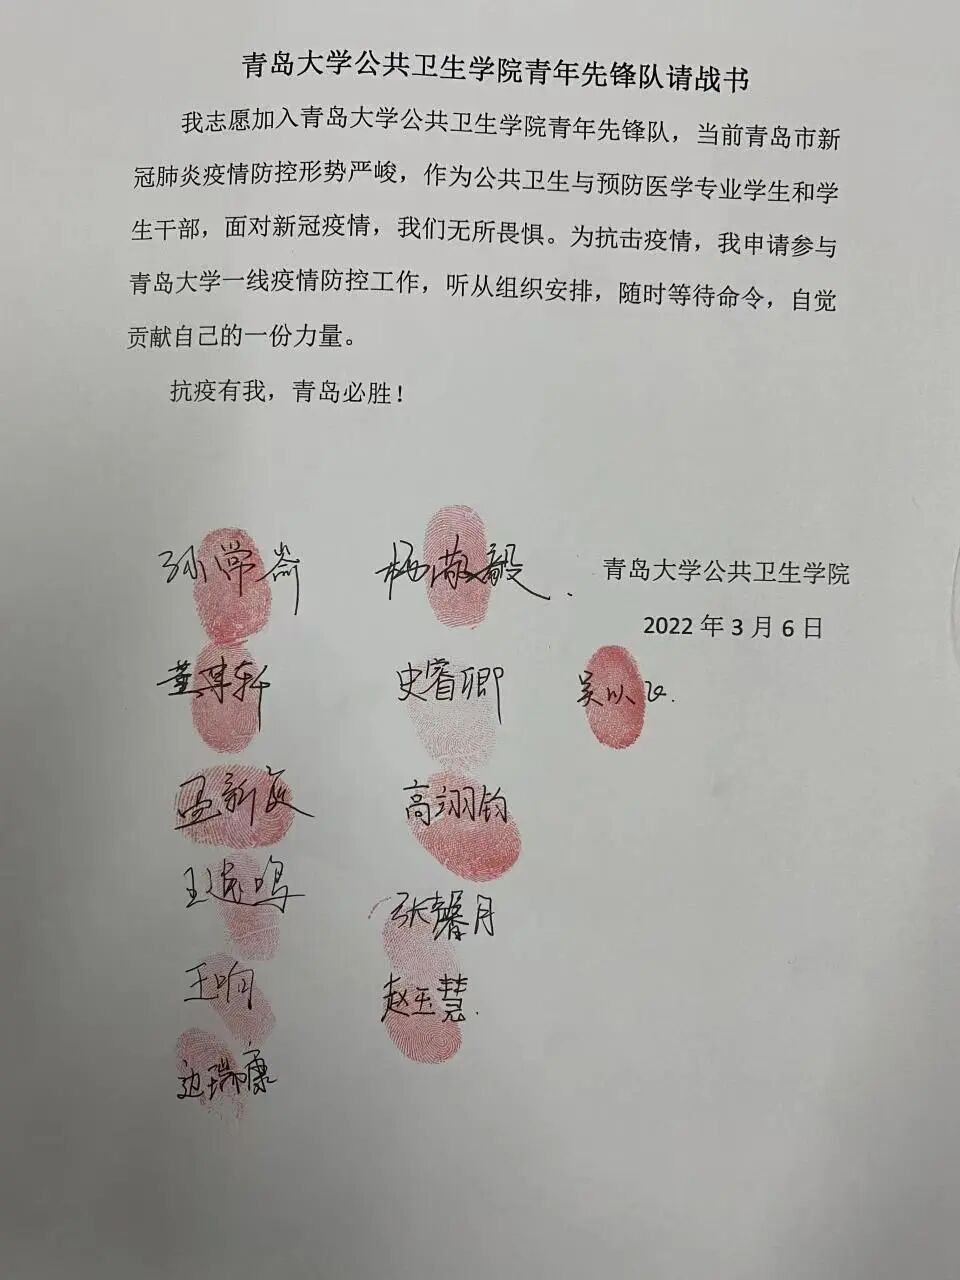 青岛大学公共卫生学院青年先锋队请战书
我志愿加入青岛大学公共卫生学院青年先锋队，当前青岛市新
冠肺炎疫情防控形势严峻，作为公共卫生与预防医学专业学生和学
生干部，面对新冠疫情，我们无所畏惧。为抗击疫情，我申请参与
青岛大学一线疫情防控工作，听从组织安排，随时等待命令，自觉
贡献自己的一份力量。
抗疫有我，青岛必胜！
孙常 杨敬毅 青岛大学公共卫生学院
2022 年 3 月 6 日
董 轩 史睿卿 吴以
新 高翊钧
王 鸣 张馨月
王响 赵玉慧.
边瑞康